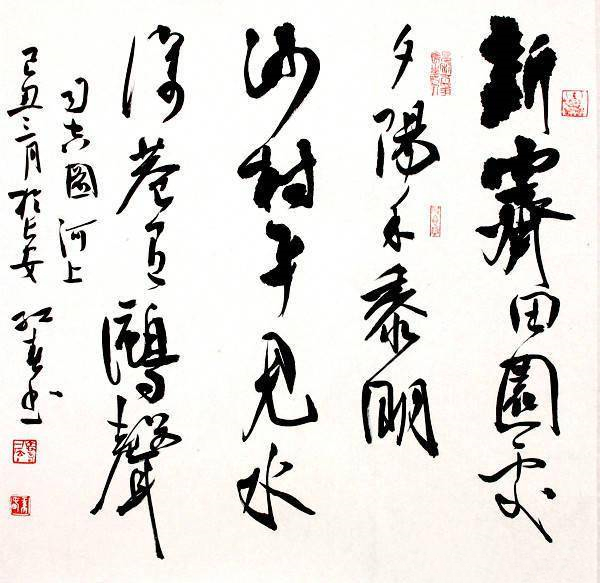 新霽田園處
夕陽禾黍明
沙村平見水
深巷有鷗聲
司空圖 河上
己丑三月於長安 書